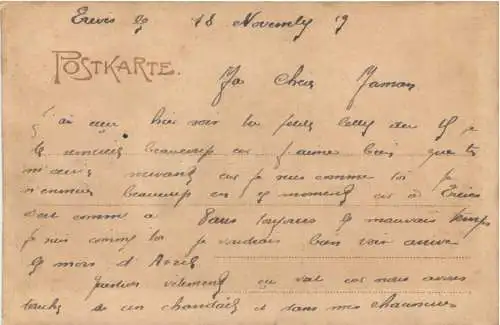 18 November 19
POSTKARTE.
Ma Chere Maman
J'ai eu hier soir ta petite lettre du 15 je
te remercie beaucoup car j'aime bien que tu
m'ecrive souvent car je suis comme toi je
m'ennuie beaucoup en ce moment car à
c'est comme à Paris toujours le mauvais temps
je suis comme toi je voudrais bien voir arrive
le mois d'Avril
question vêtement ça va car nous avons
touche de un chandail et dans mes chaussures